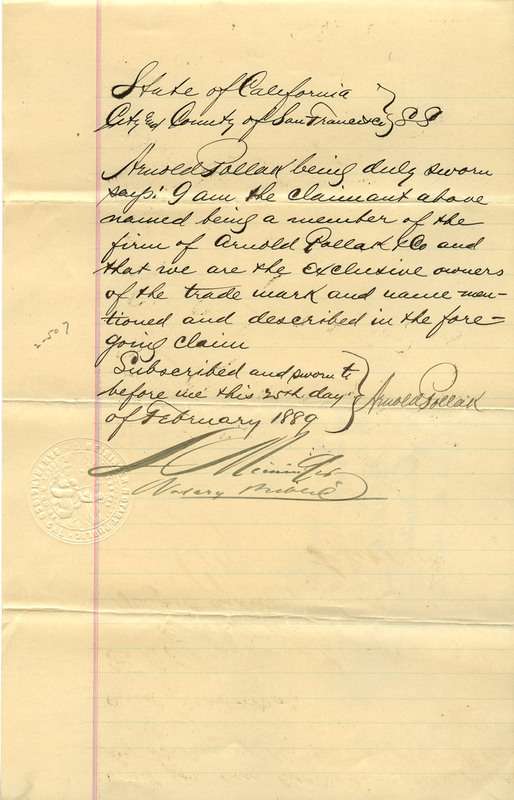 State of California
City and County of San Francisco } SS
Arnold Pollak being duly sworn
says: I am the claimant above
named being a member of the
firm of Arnold Pollak & Co and
that we are the exclusive owners
of the trade mark and name men-
tioned and described in the fore-
going claim
Subscribed and sworn to
before me this 25th day
of February 1889
Arnold Pollak
Notary Public
2507